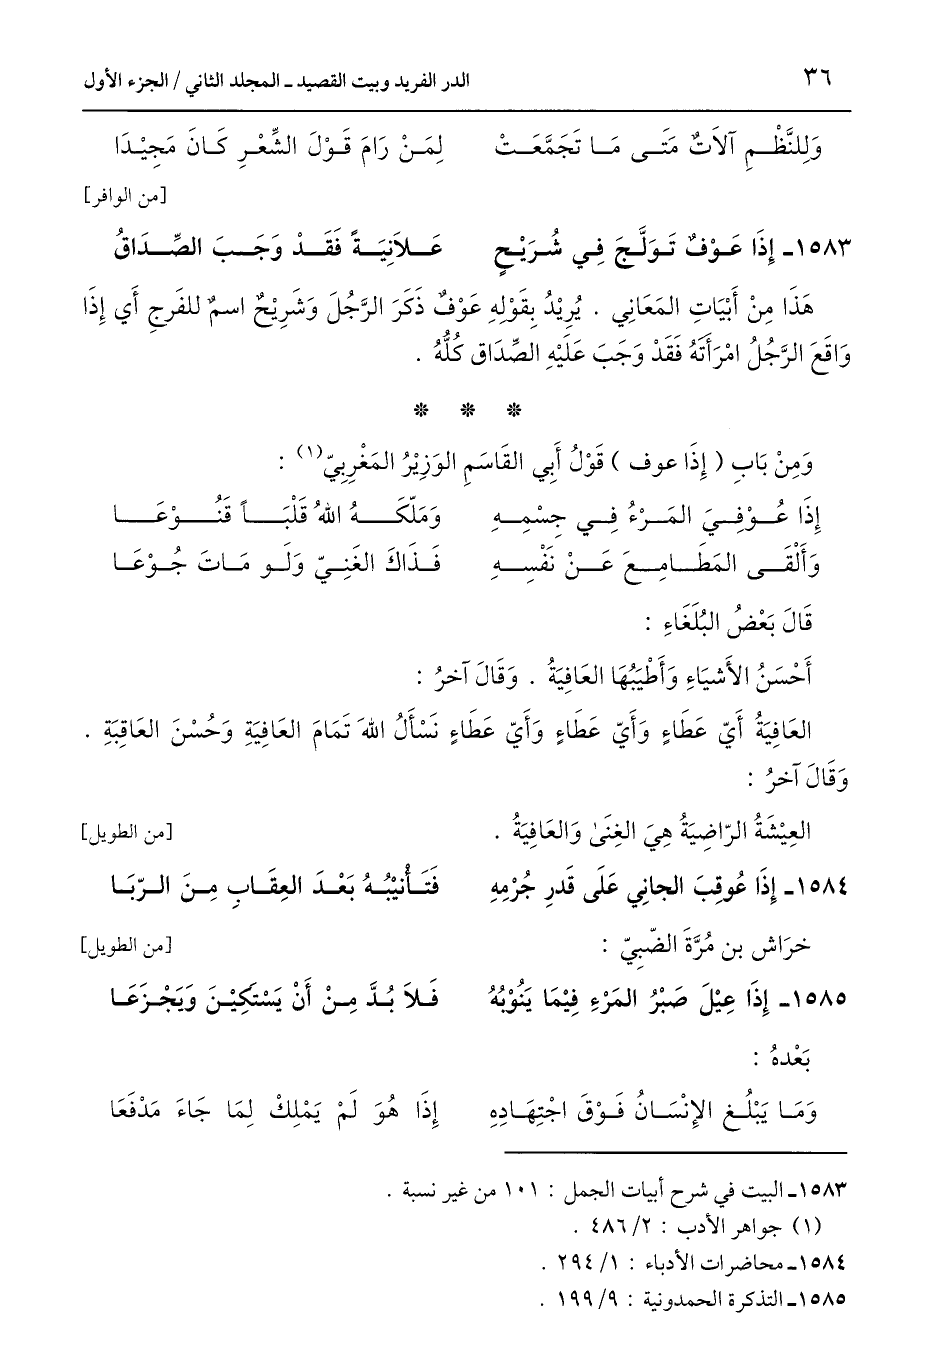 ٣٦ الدر الفريد وبيت القصيد ـ المجلد الثاني / الجزء الأول
وَلِلنَّظْـمِ آلَاتٌ مَتَـى مَـا تَجَمَّعَـتْ لِمَـنْ رَامَ قَـوْلَ الشِّعْـرِ كَـانَ مَجِيْـدَا
[من الوافر]
١٥٨٣ـ إِذَا عَـوْفٌ تَـوَلَّجَ فِـي شُـرَيْـحٍ عَـلَانِيَـةً فَقَـدْ وَجَـبَ الصِّـدَاقُ
هَذَا مِنْ أَبْيَاتِ المَعَانِي . يُرِيْدُ بِقَوْلِهِ عَوْفٌ ذَكَرَ الرَّجُلَ وَشَرِيْحٌ اسمٌ للفَرجِ أَي إِذَا
وَاقَعَ الرَّجُلُ امْرَأَتَهُ فَقَدْ وَجَبَ عَلَيْهِ الصِّدَاق كُلُّهُ .
* * *
وَمِنْ بَابِ ( إِذَا عوف ) قَوْلُ أَبِي القَاسَمِ الوَزِيْرُ المَغْرِبِيّ(١) :
إِذَا عُـوْفِـيَ المَـرْءُ فِـي جِسْمِـهِ وَمَلّكَـهُ اللهُ قَلْبَـاً قَنُـوْعَـا
وَأَلْقَـى المَطَـامِـعَ عَـنْ نَفْسِـهِ فَـذَاكَ الغَنِـيّ وَلَـو مَـاتَ جُـوْعَـا
قَالَ بَعْضُ البُلَغَاءِ :
أَحْسَنُ الأَشْيَاءِ وَأَطْيَبُهَا العَافِيَةُ . وَقَالَ آخرُ :
العَافِيَةُ أَيّ عَطَاءٍ وَأَيّ عَطَاءٍ وَأَيّ عَطَاءٍ نَسْأَلُ اللهَ تَمَامَ العَافِيَةِ وَحُسْنَ العَاقِبَةِ .
وَقَالَ آخرُ :
العِيْشَةُ الرّاضِيَةُ هِيَ الغِنَىٰ وَالعَافِيَةُ . [من الطويل]
١٥٨٤ـ إِذَا عُوقِبَ الجاني عَلَى قَدرِ جُرْمِهِ فَتَـأْنِيْبُـهُ بَعْـدَ العِقَـابِ مِـنَ الـرّبَـا
خرَاش بن مُرَّةَ الضّبِيّ : [من الطويل]
١٥٨٥ـ إِذَا عِيْلَ صَبْرُ المَرْءِ فِيْمَا يَنُوْبُهُ فَـلَا بُـدَّ مِـنْ أَنْ يَسْتَكِيْـنَ وَيَجْـزَعَـا
بَعْدهُ :
وَمَـا يَبْلُـغِ الإِنْسَـانُ فَـوْقَ اجْتِهَـادِهِ إِذَا هُوَ لَمْ يَمْلِكْ لِمَا جَاءَ مَدْفَعَا
١٥٨٣ـ البيت في شرح أبيات الجمل : ١٠١ من غير نسبة .
(١) جواهر الأدب : ٢/ ٤٨٦ .
١٥٨٤ـ محاضرات الأدباء : ١/ ٢٩٤ .
١٥٨٥ـ التذكرة الحمدونية : ٩/ ١٩٩ .